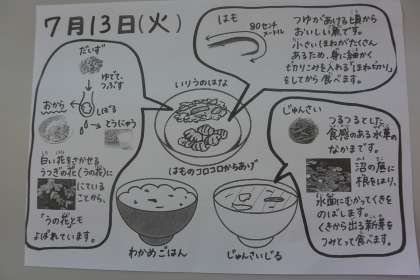 7月13日(火)
はも
80センチ
メートル
つゆがあける頃から
おいしい魚です。
小さいほねがたくさん
あるため、身に細かく
切りこみを入れる「ほねぎり」
をしてから食べます。
だいず
ゆでて、
つぶす
おから
しぼる
とうにゅう
白い花をさかせる
うつぎの花(うの花)に
にている
ことから、
「うの花」とも
よばれています。
いりうのはな
はものコロコロからあげ
わかめごはん
じゅんさいじる
じゅんさい
つるつるとした
食感のある水草の
なかまです。
沼の底に
根をはり、
水面にむかってくきを
のばします。
くきから出る新芽を
つみとって食べます。